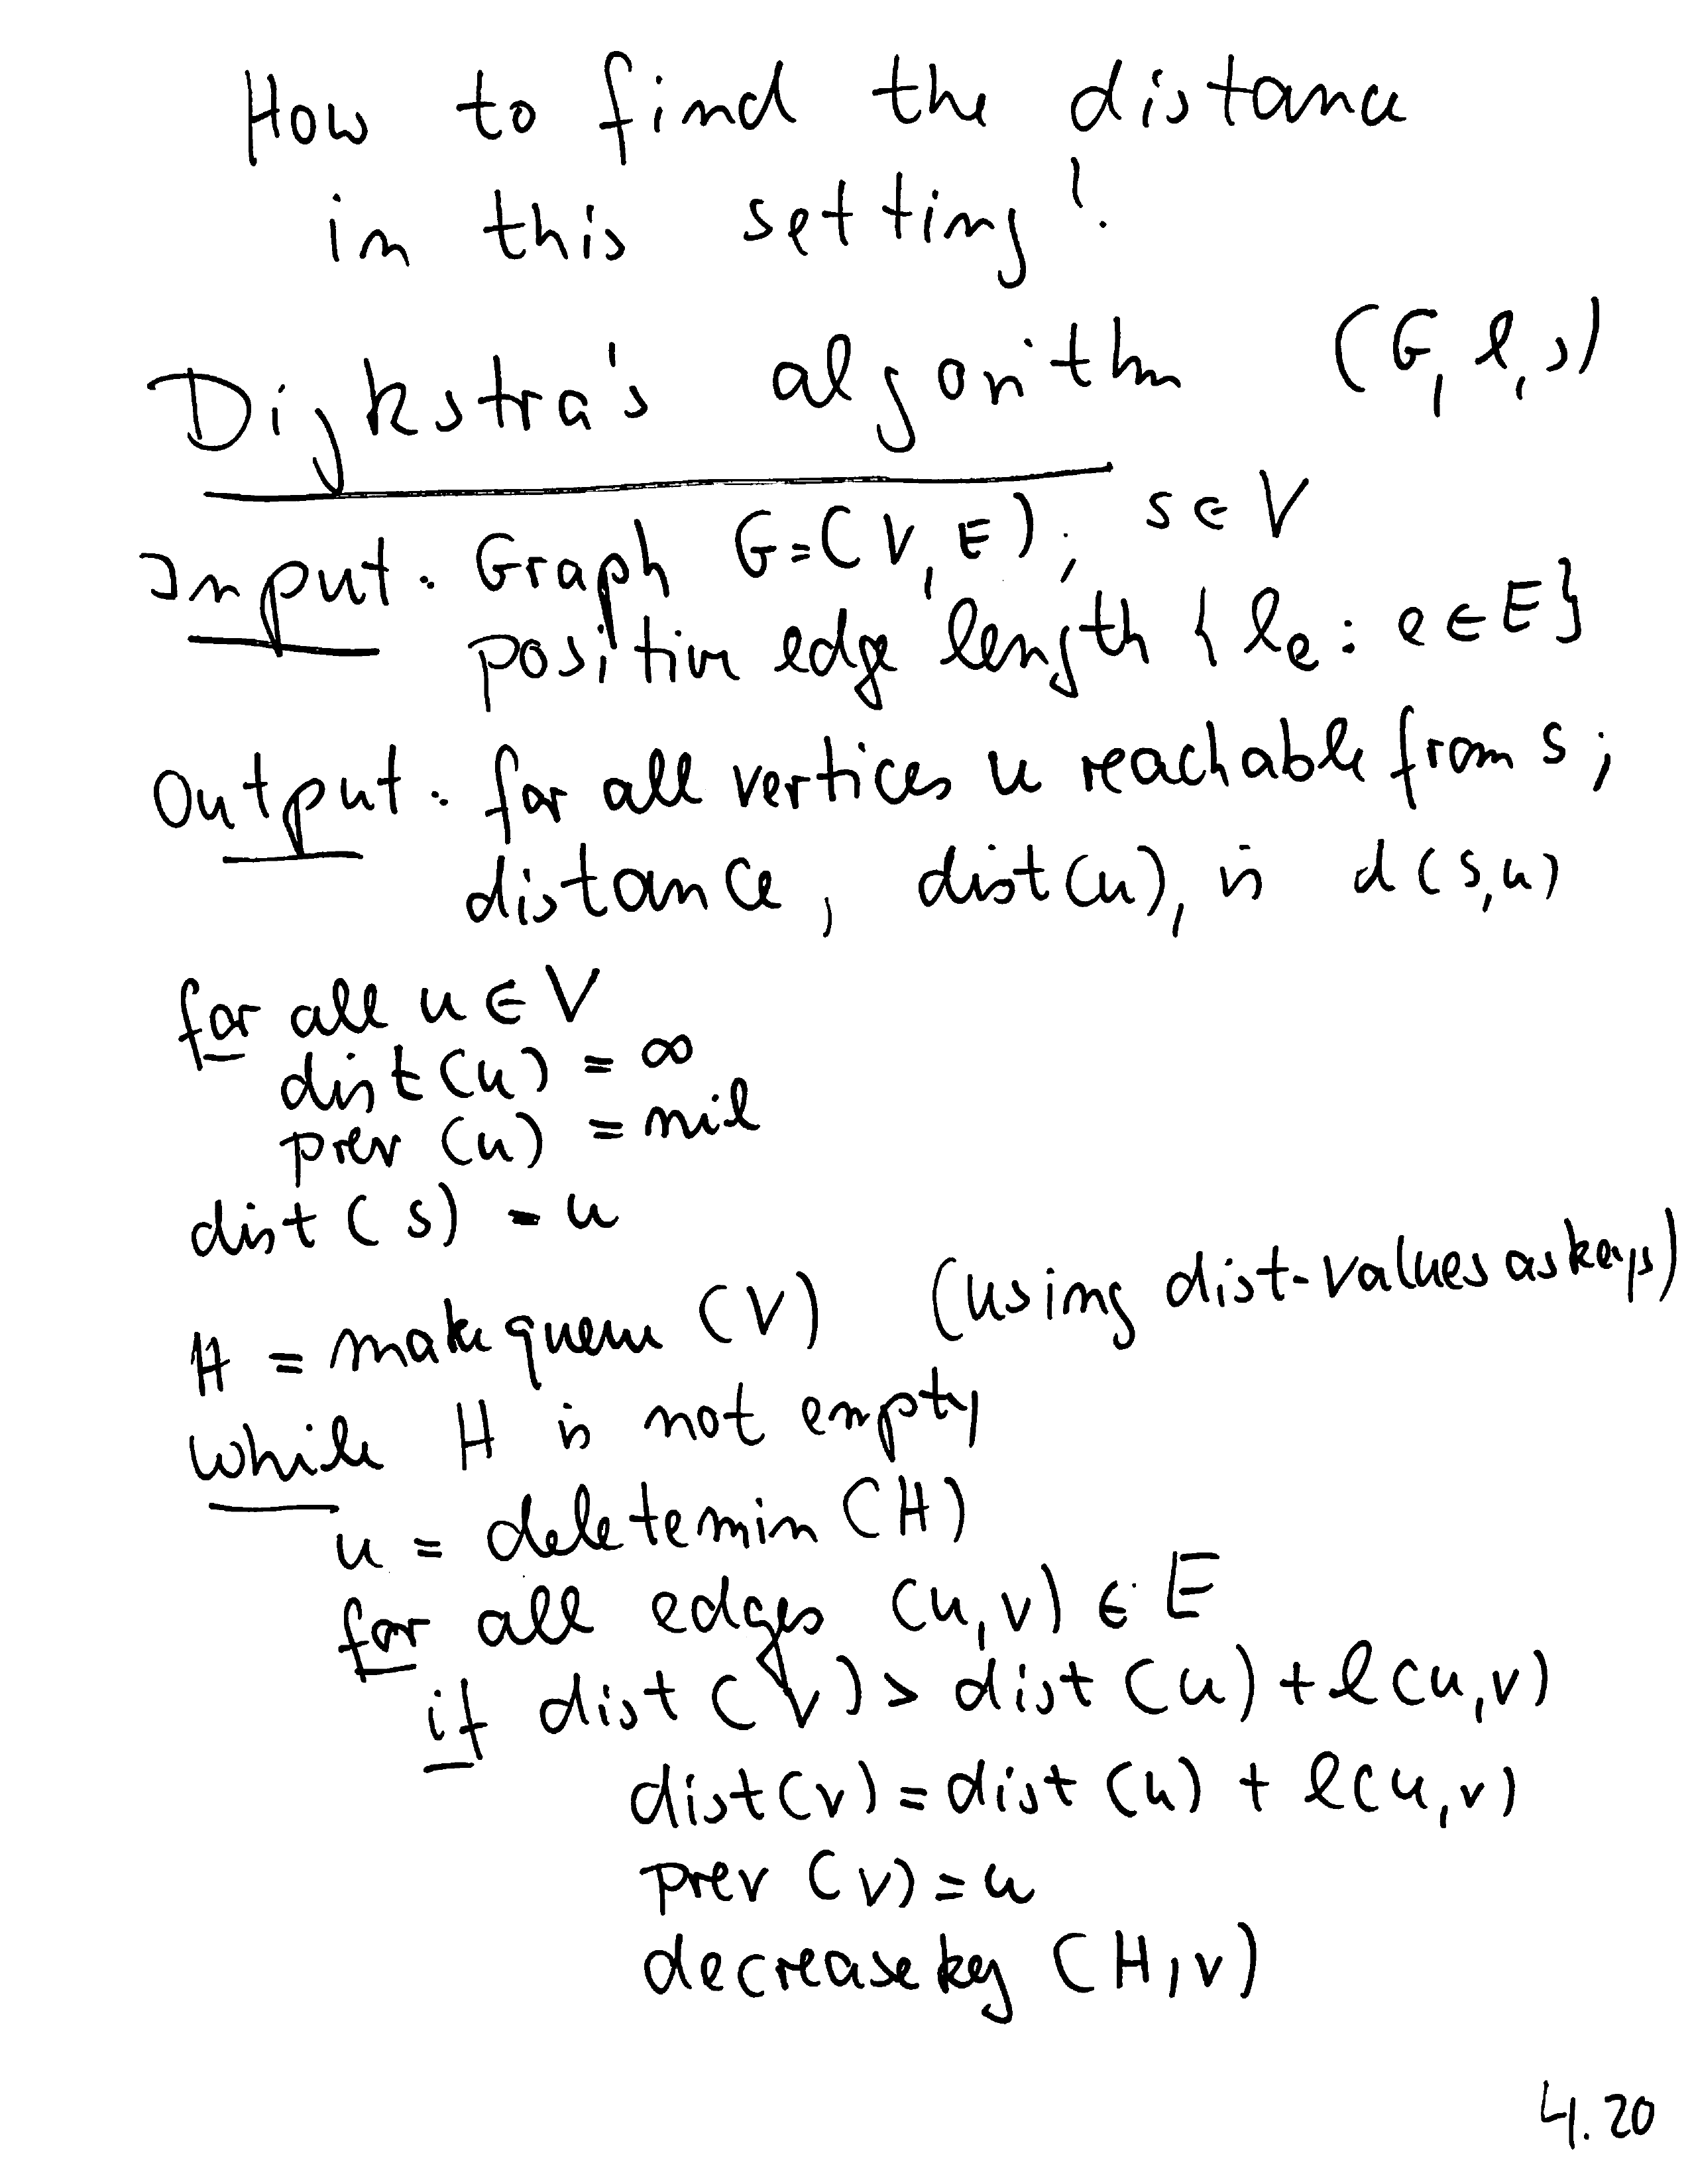 How to find the distance
in this setting?
Dijkstra's algorithm (G, l, s)
Input: Graph G=(V, E); s ∈ V
positive edge length { l_e : e ∈ E }
Output: for all vertices u reachable from s;
distance, dist(u), is d(s,u)
for all u ∈ V
dist(u) = ∞
prev(u) = nil
dist(s) = u
H = makequeue (V) (using dist-values as keys)
while H is not empty
u = deletemin (H)
for all edges (u,v) ∈ E
if dist(v) > dist(u) + l(u,v)
dist(v) = dist(u) + l(u,v)
prev(v) = u
decreasekey (H,v)
4.20